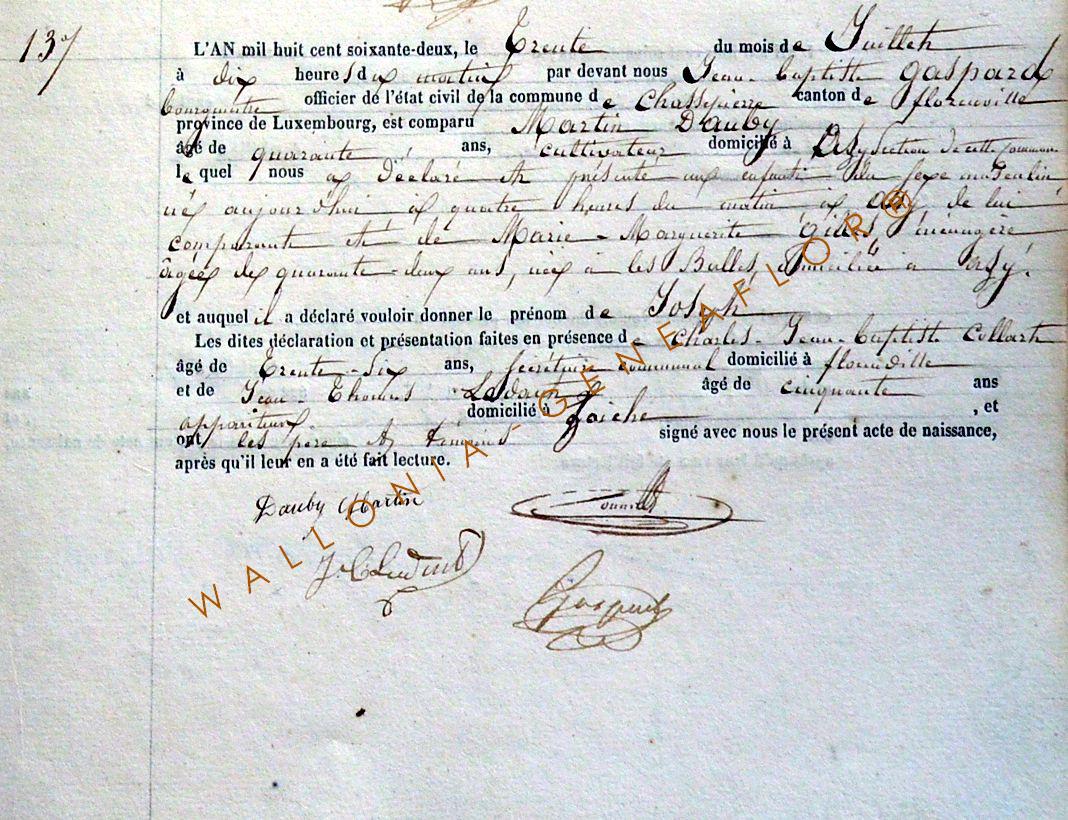 137
L'AN mil huit cent soixante-deux, le Trente du mois de Juillet
à dix heures du matin par devant nous Jean-Baptiste Gaspard
bourgmestre officier de l'état civil de la commune de Chassepierre canton de florenville
province de Luxembourg, est comparu Martin Dauby
âgé de quarante ans, cultivateur domicilié à Azy Section de cette commune
le quel nous a déclaré et présenté un enfant du sexe masculin
né aujourd'hui à quatre heures du matin à Azy de lui
comparant et de Marie-Marguerite Gilles ménagère
âgée de quarante-deux ans, née à les Bulles, domiciliée à Azy.
et auquel il a déclaré vouloir donner le prénom de Joseph
Les dites déclaration et présentation faites en présence de Charles-Jean-Baptiste Collart
âgé de Trente-Six ans, Secrétaire communal domicilié à florenville
et de Jean Thomas Ledent âgé de cinquante ans
appariteur domicilié à Laiche , et
ont les père et témoins signé avec nous le présent acte de naissance,
après qu'il leur en a été fait lecture.
Dauby Martin
Gaspard
WALLONIA-GENEAFLOR®